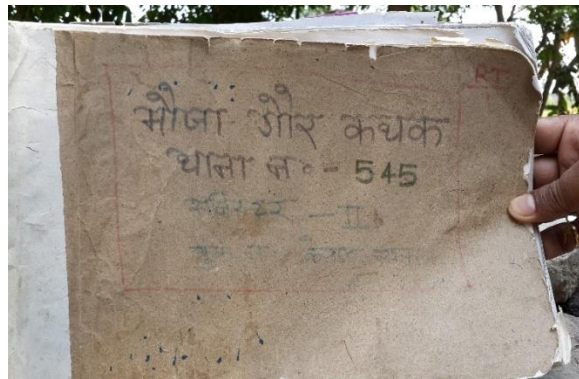 RT
मौजा गौर कथक
थाना न० - 545
रजिस्टर - II